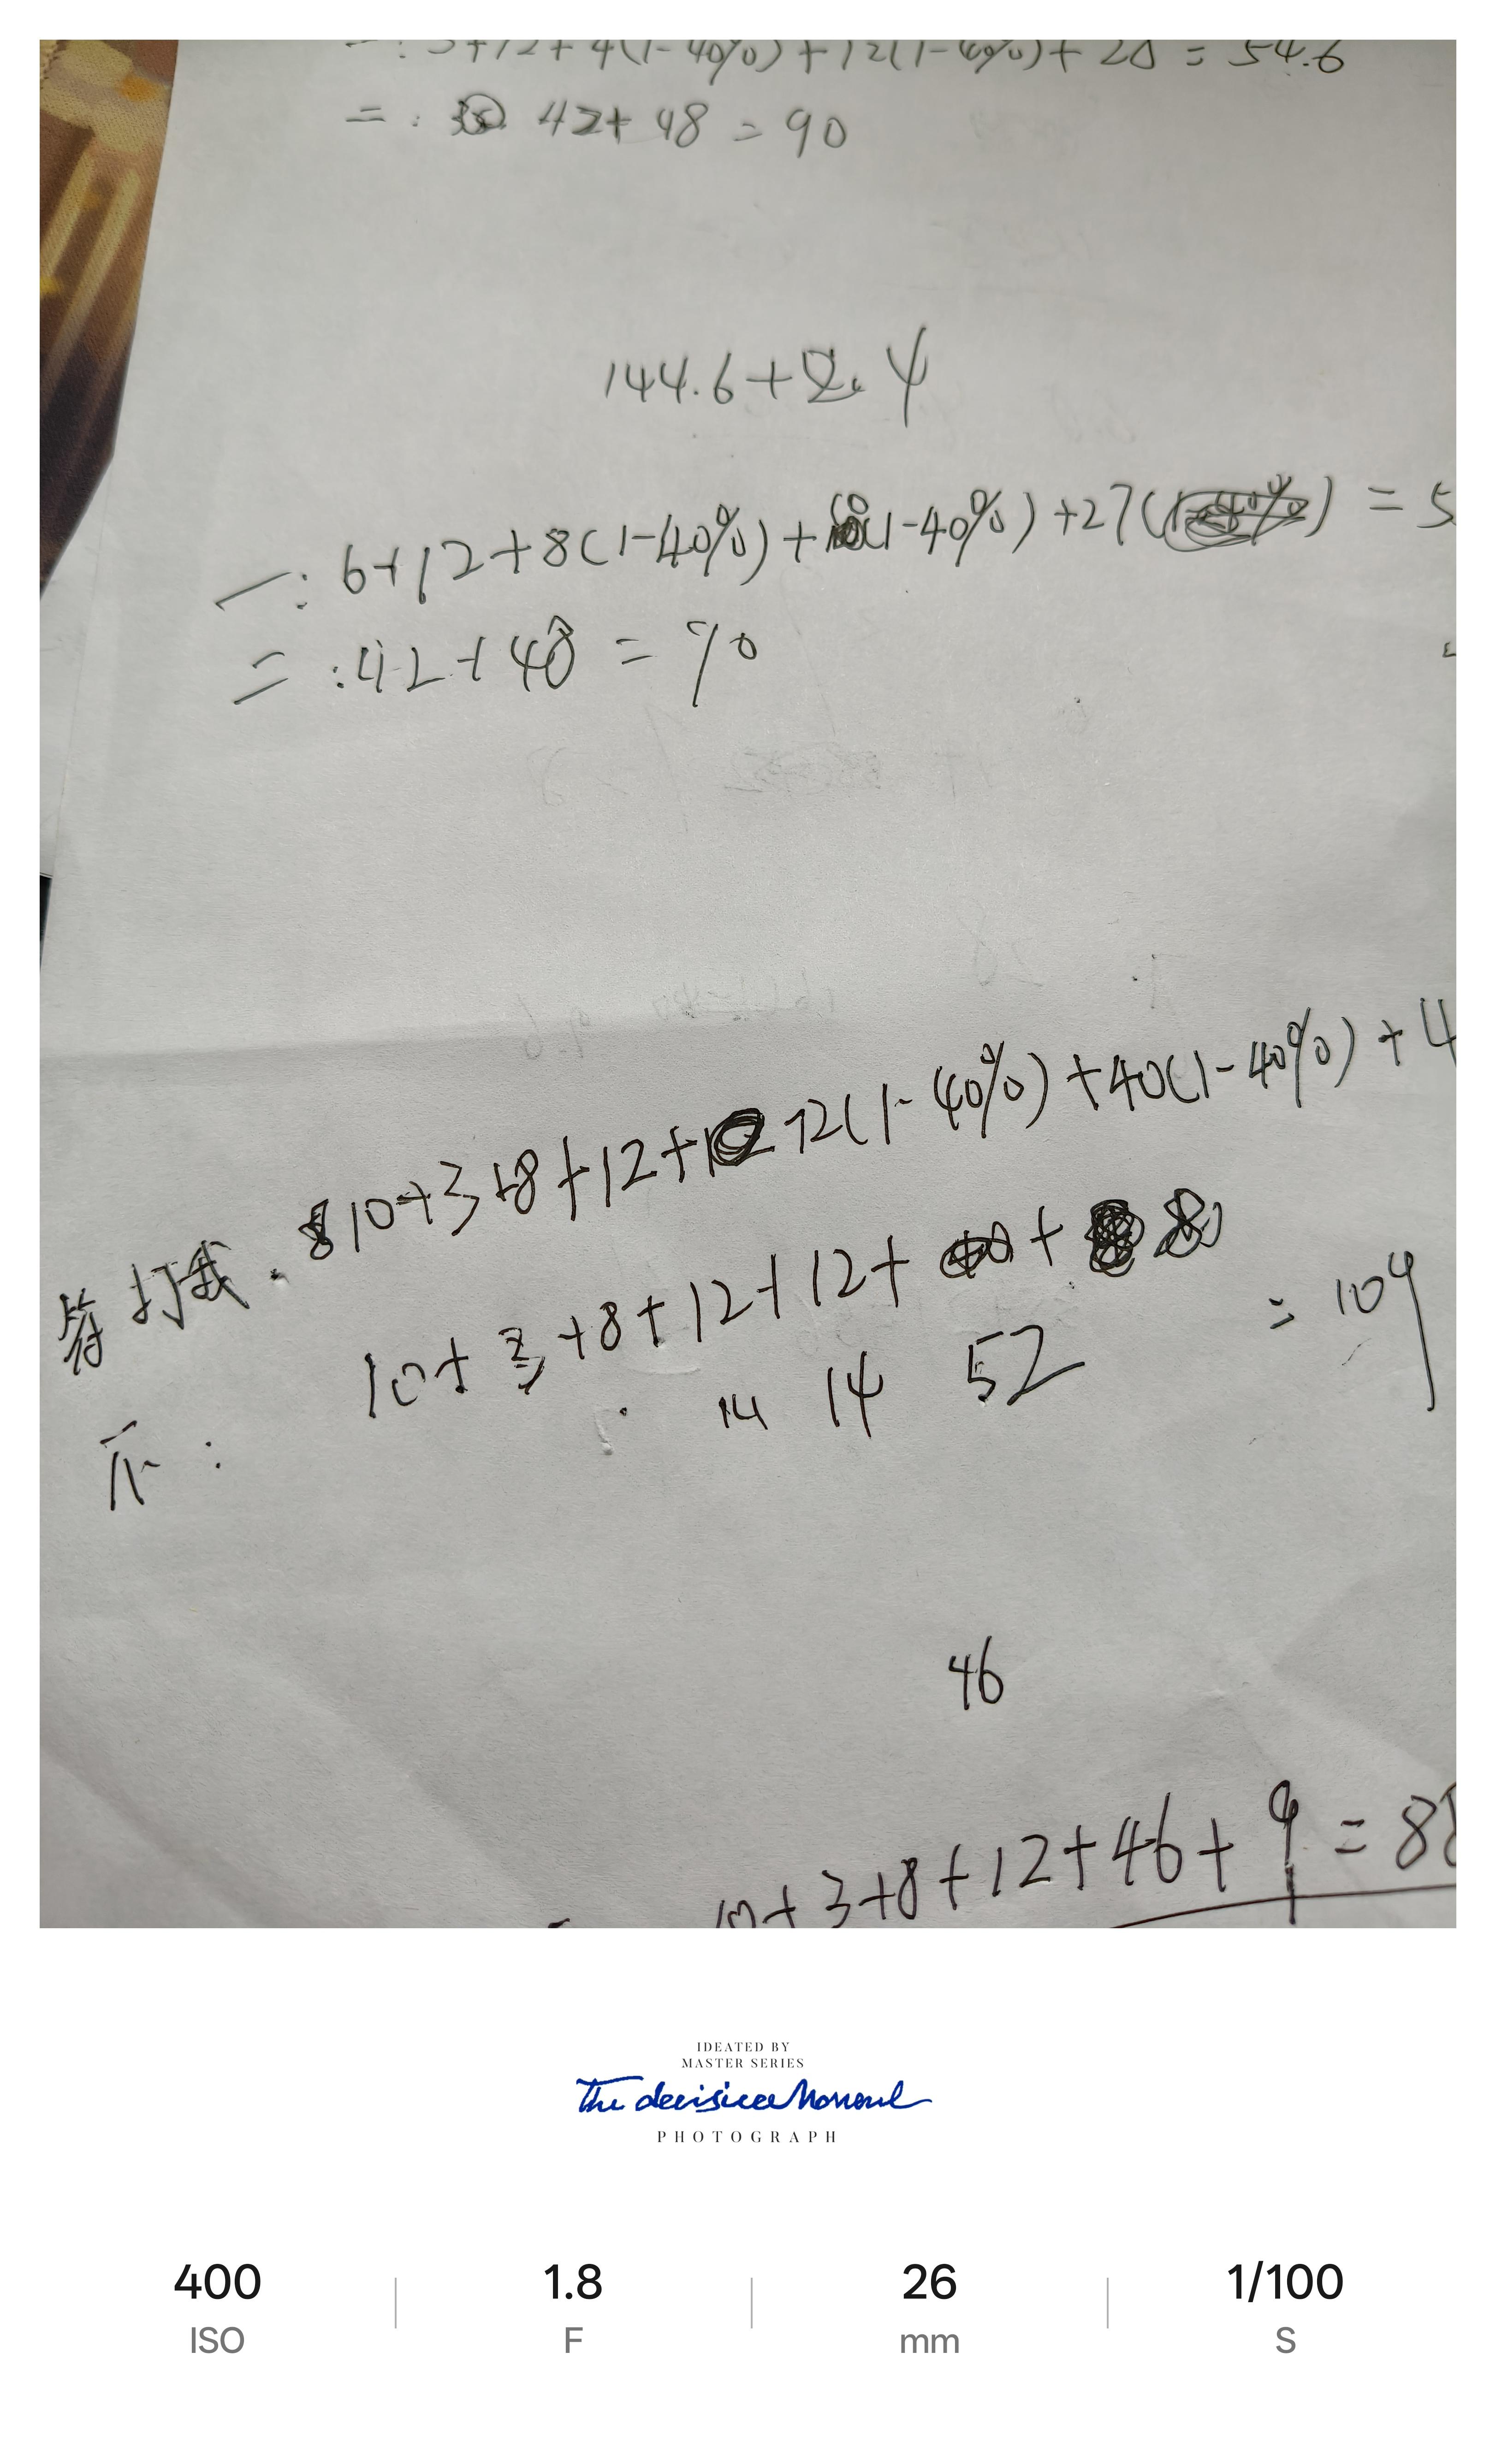 一: 3+12+4(1-40%)+12(1-40%)+20 = 54.6
二: 42+48=90
144.6+2.4
一: 6+12+8(1-40%)+(1-40%)+27( ) = 5
二:42+48=90
等打我. 10+3+8+12+12(1-40%)+40(1-40%)+4
不: 10+3+8+12+12+ + = 104
14 14 52
46
10+3+8+12+46+9=88
IDEATED BY
MASTER SERIES
The decisive Moment
PHOTOGRAPH
400 1.8 26 1/100
ISO F mm S